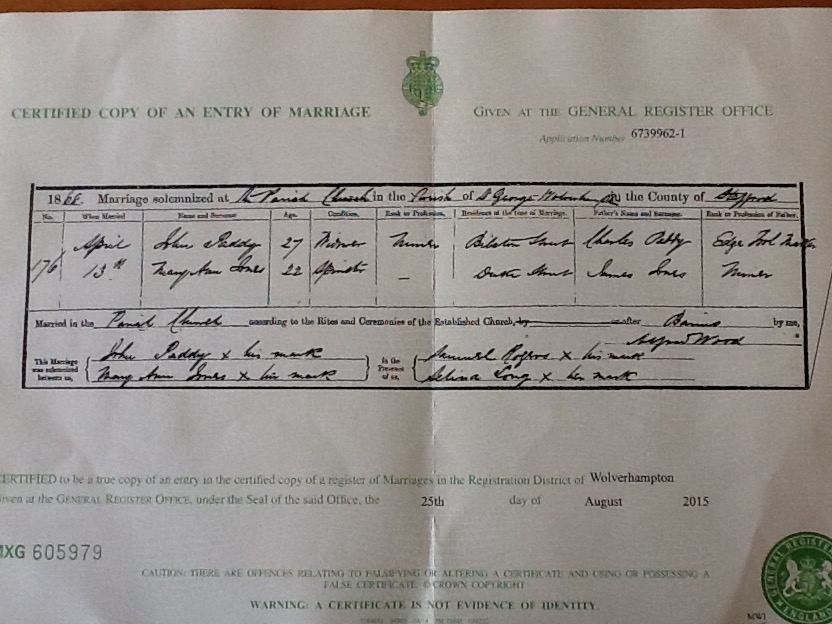 CERTIFIED COPY OF AN ENTRY OF MARRIAGE
GIVEN AT THE GENERAL REGISTER OFFICE
Application Number 6739962-1
1868. Marriage solemnized at the Parish Church in the Parish of St George in the County of Stafford
No. When Married Name and Surname Age. Condition. Rank or Profession. Residence at the time of Marriage. Father's Name and Surname. Rank or Profession of Father.
176 April 13th
John Paddy 27 Miner Bilston Street Charles Paddy Edge Tool
Mary Ann Jones 22 Spinster — Duke Street James Jones Miner
Married in the Parish Church according to the Rites and Ceremonies of the Established Church, by or after Banns by me,
Alfred Wood
This Marriage was solemnized between us, John Paddy x his mark
Mary Ann Jones x his mark
In the Presence of us, Samuel Rogers x his mark
Selina Long x her mark
CERTIFIED to be a true copy of an entry in the certified copy of a register of Marriages in the Registration District of Wolverhampton
Given at the GENERAL REGISTER OFFICE, under the Seal of the said Office, the 25th day of August 2015
MXG 605979
CAUTION: THERE ARE OFFENCES RELATING TO FALSIFYING OR ALTERING A CERTIFICATE AND USING OR POSSESSING A
FALSE CERTIFICATE. ©CROWN COPYRIGHT
WARNING: A CERTIFICATE IS NOT EVIDENCE OF IDENTITY.
GENERAL REGISTER
ENGLAND